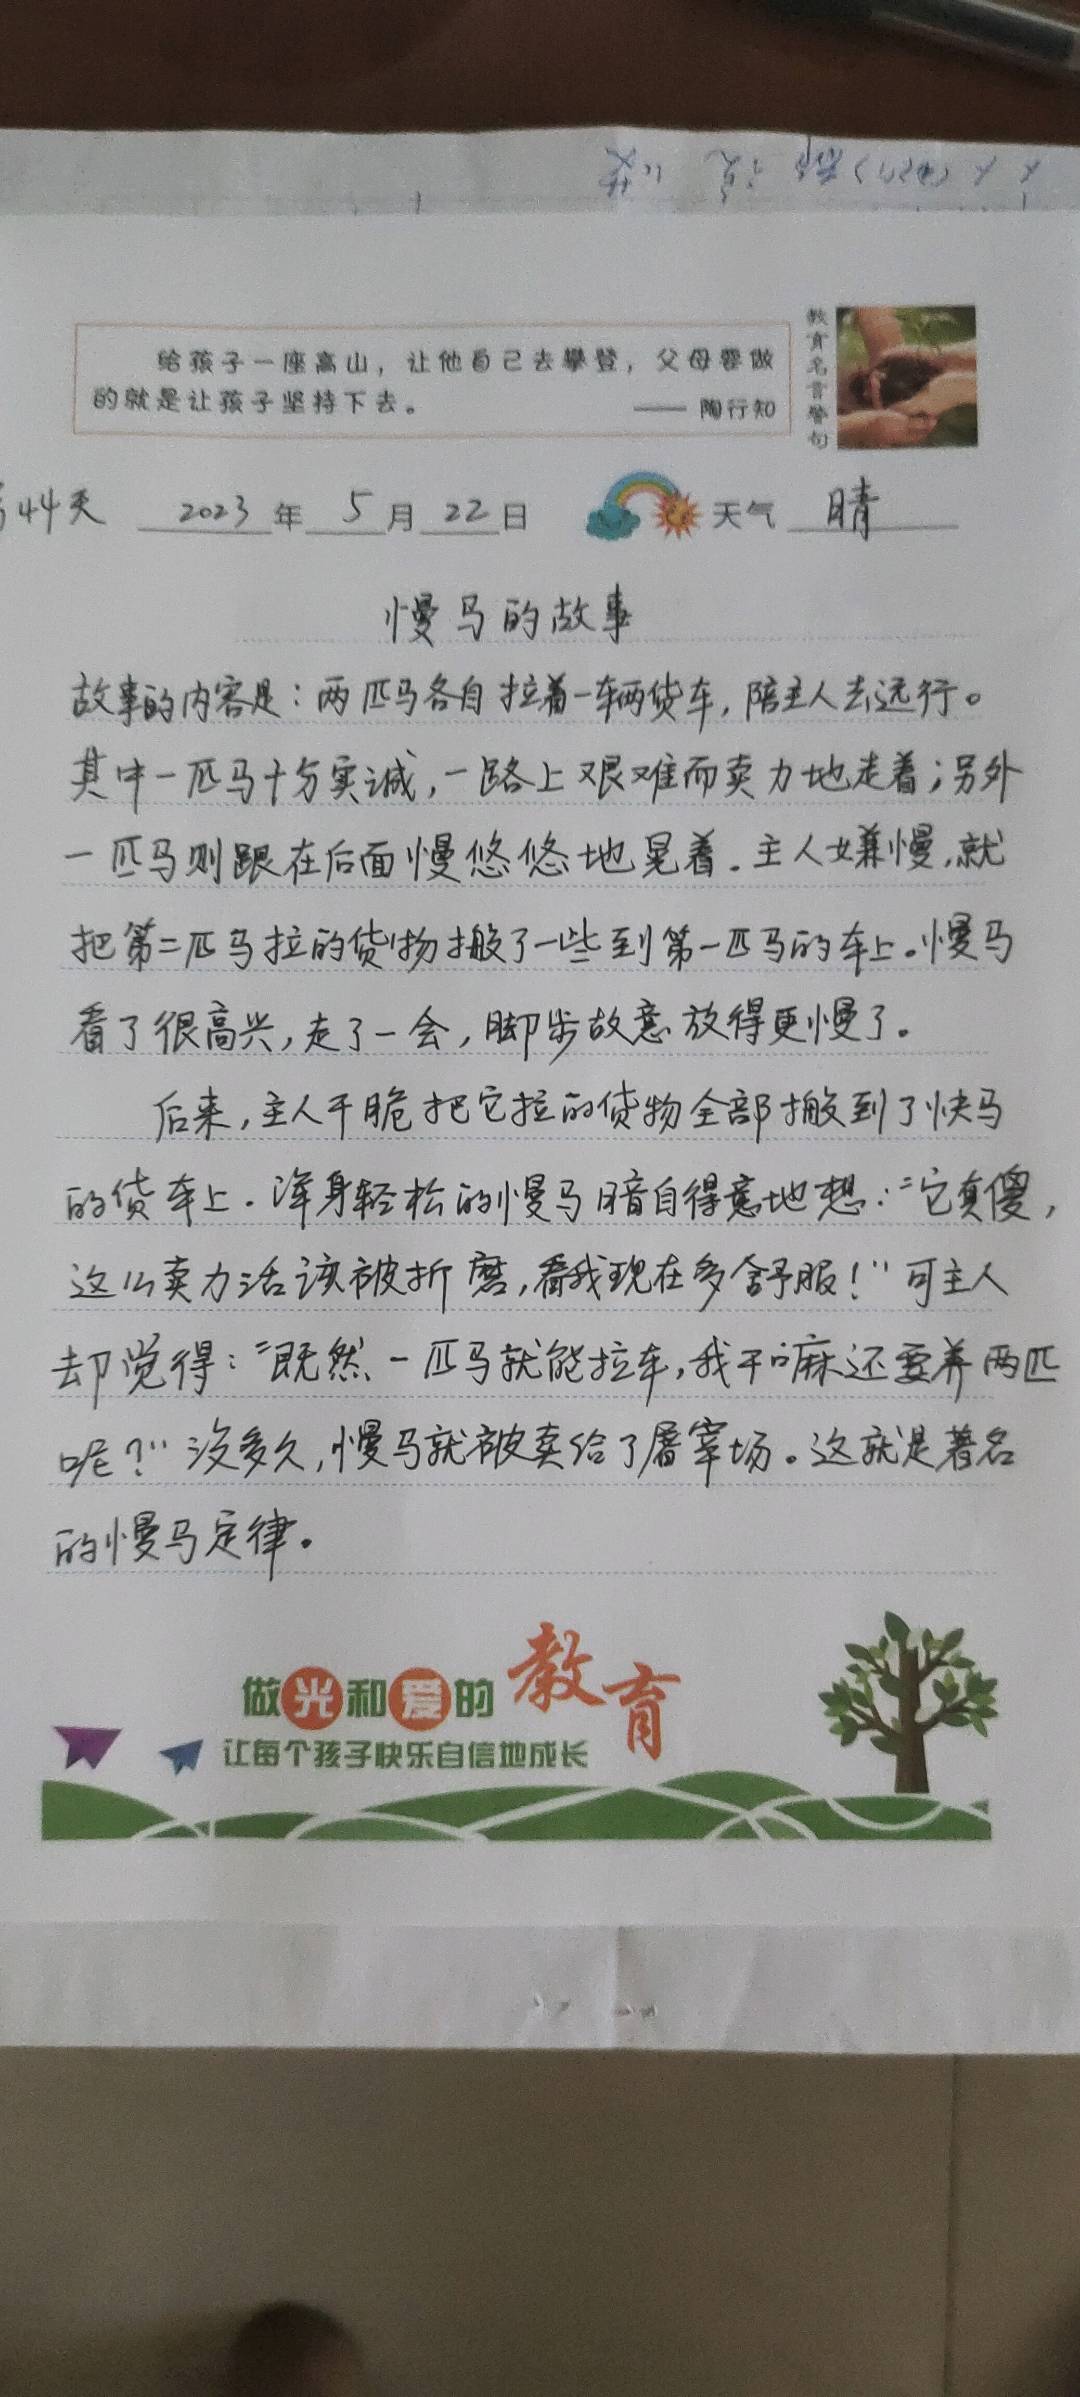 给孩子一座高山，让他自己去攀登，父母要做
的就是让孩子坚持下去。
—— 陶行知
教育名言警句
44天 2023年5月22日 天气 晴
慢马的故事
故事的内容是：两匹马各自拉着一车辆货车，陪主人去远行。
其中一匹马十分实诚，一路上艰难而卖力地走着；另外
一匹马则跟在后面慢悠悠地晃着.主人嫌慢,就
把第二匹马拉的货物搬了一些到第一匹马的车上。慢马
看了很高兴，走了一会，脚步故意放得更慢了。
后来，主人干脆把它拉的货物全部搬到了快马
的货车上.浑身轻松的慢马暗自得意地想：“它真傻，
这么卖力活该被折磨，看我现在多舒服！”可主人
却觉得：“既然一匹马就能拉车，我干嘛还要养两匹
呢？”没多久，慢马就被卖给了屠宰场。这就是著名
的慢马定律。
做光和爱的教育
让每个孩子快乐自信地成长